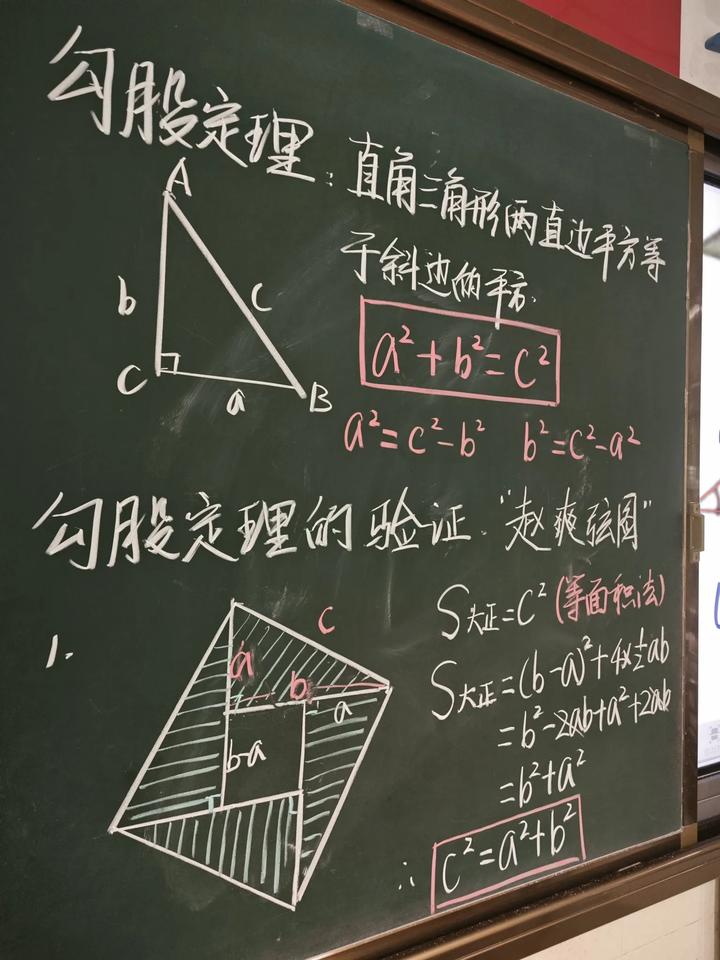 勾股定理：直角三角形两直边平方等
于斜边的平方.
A
b
c
C
a
B
a²+b²=c²
a²=c²-b²  b²=c²-a²
勾股定理的验证."赵爽弦图"
1.
c
a
b
a
b-a
S大正=c²(等面积法)
S大正=(b-a)²+4×½ab
=b²-2ab+a²+2ab
=b²+a²
∴ c²=a²+b²